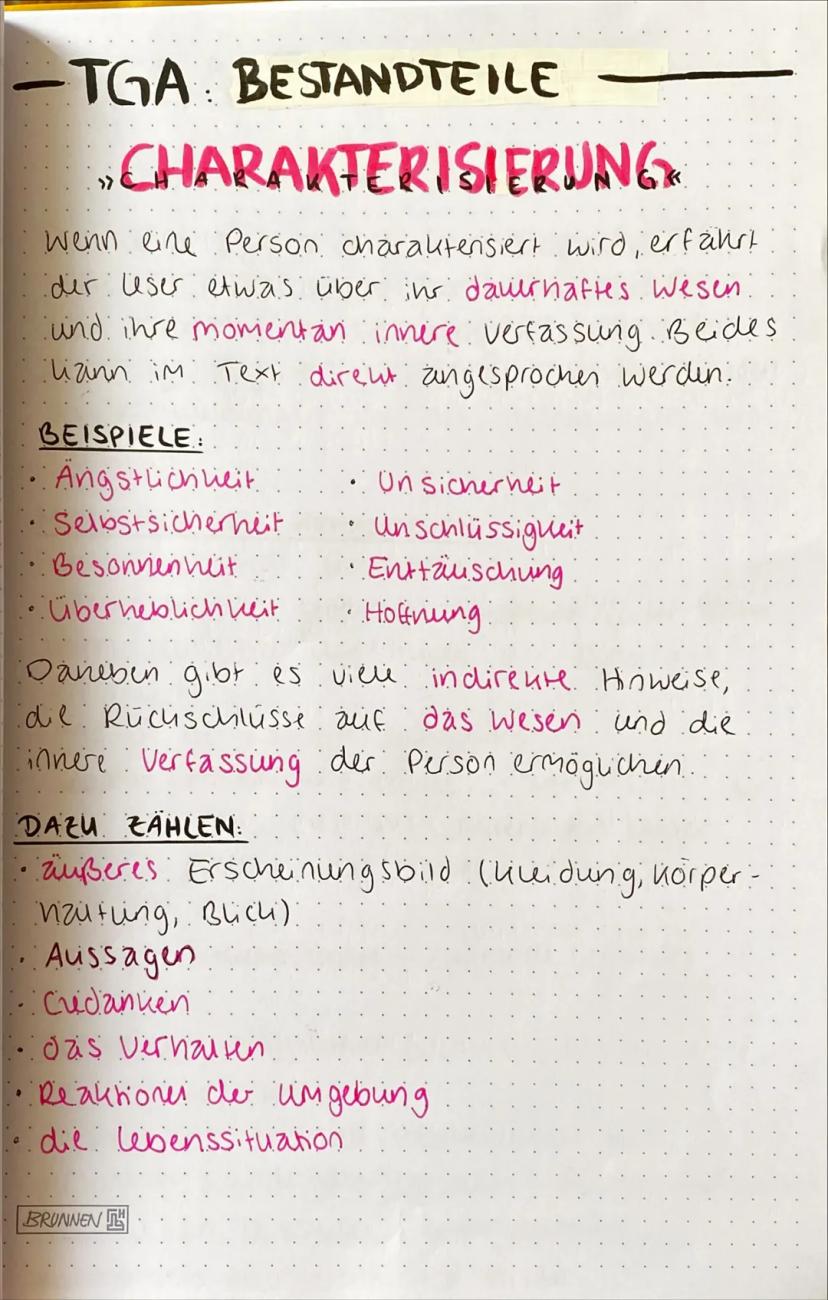 TGA: BESTANDTEILE
CHARAKTERISIERUNG
»CHARAKTERISIERUNG«
Wenn eine Person charakterisiert wird, erfährt
der Leser etwas über ihr dauerhaftes Wesen
und ihre momentan innere Verfassung. Beides
kann im Text direkt angesprochen werden.
BEISPIELE:
• Ängstlichkeit • Unsicherheit
• Selbstsicherheit • Unschlüssigkeit
• Besonnenheit • Enttäuschung
• Überheblichkeit • Hoffnung
Daneben gibt es viele indirekte Hinweise,
die Rückschlüsse auf das Wesen und die
innere Verfassung der Person ermöglichen.
DAZU ZÄHLEN:
• äußeres Erscheinungsbild (Kleidung, Körper-
haltung, Blick)
• Aussagen
• Gedanken
• das Verhalten
• Reaktionen der Umgebung
• die Lebenssituation
BRUNNEN